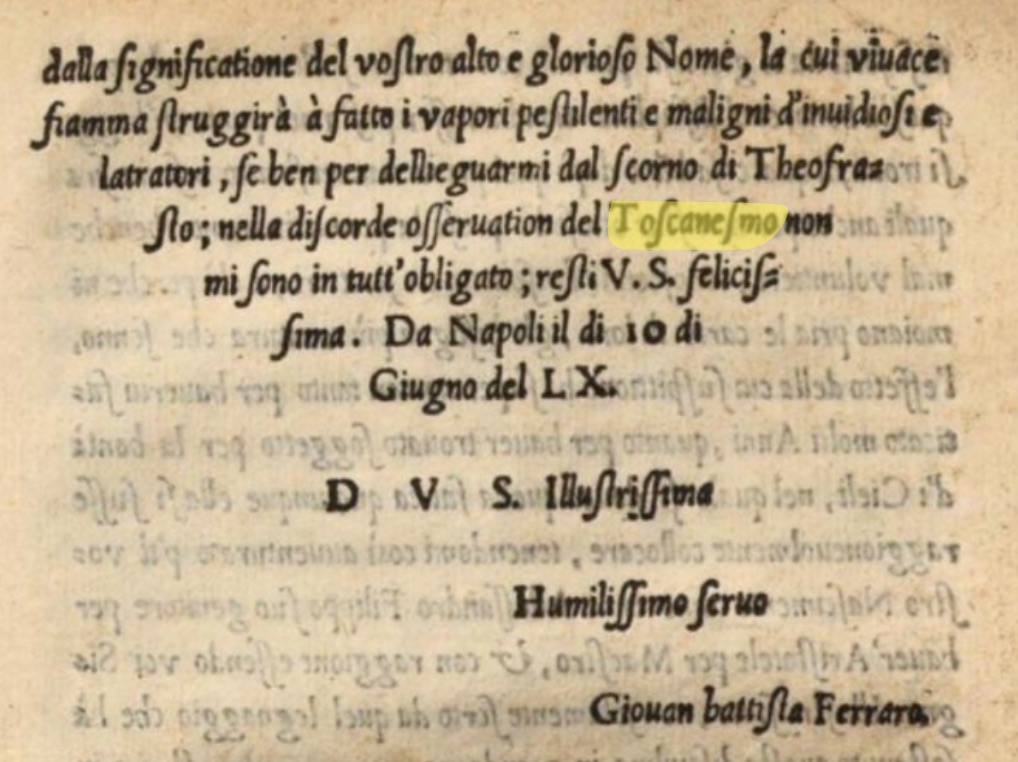 dalla ſignificatione del voſtro alto e glorioſo Nome, la cui viuace
fiamma ſtruggirà à fatto i vapori peſtilenti e maligni d'inuidioſi e
latratori, ſe ben per dellieguarmi dal ſcorno di Theofra⸗
ſto; nella diſcorde oſſeruation del Toſcaneſmo non
mi ſono in tutt'obligato; reſti V. S. feliciſ⸗
ſima. Da Napoli il di 10 di
Giugno del LX.
D V S. Illuſtriſſima
Humiliſſimo ſeruo
Giouan battiſta Ferraro.